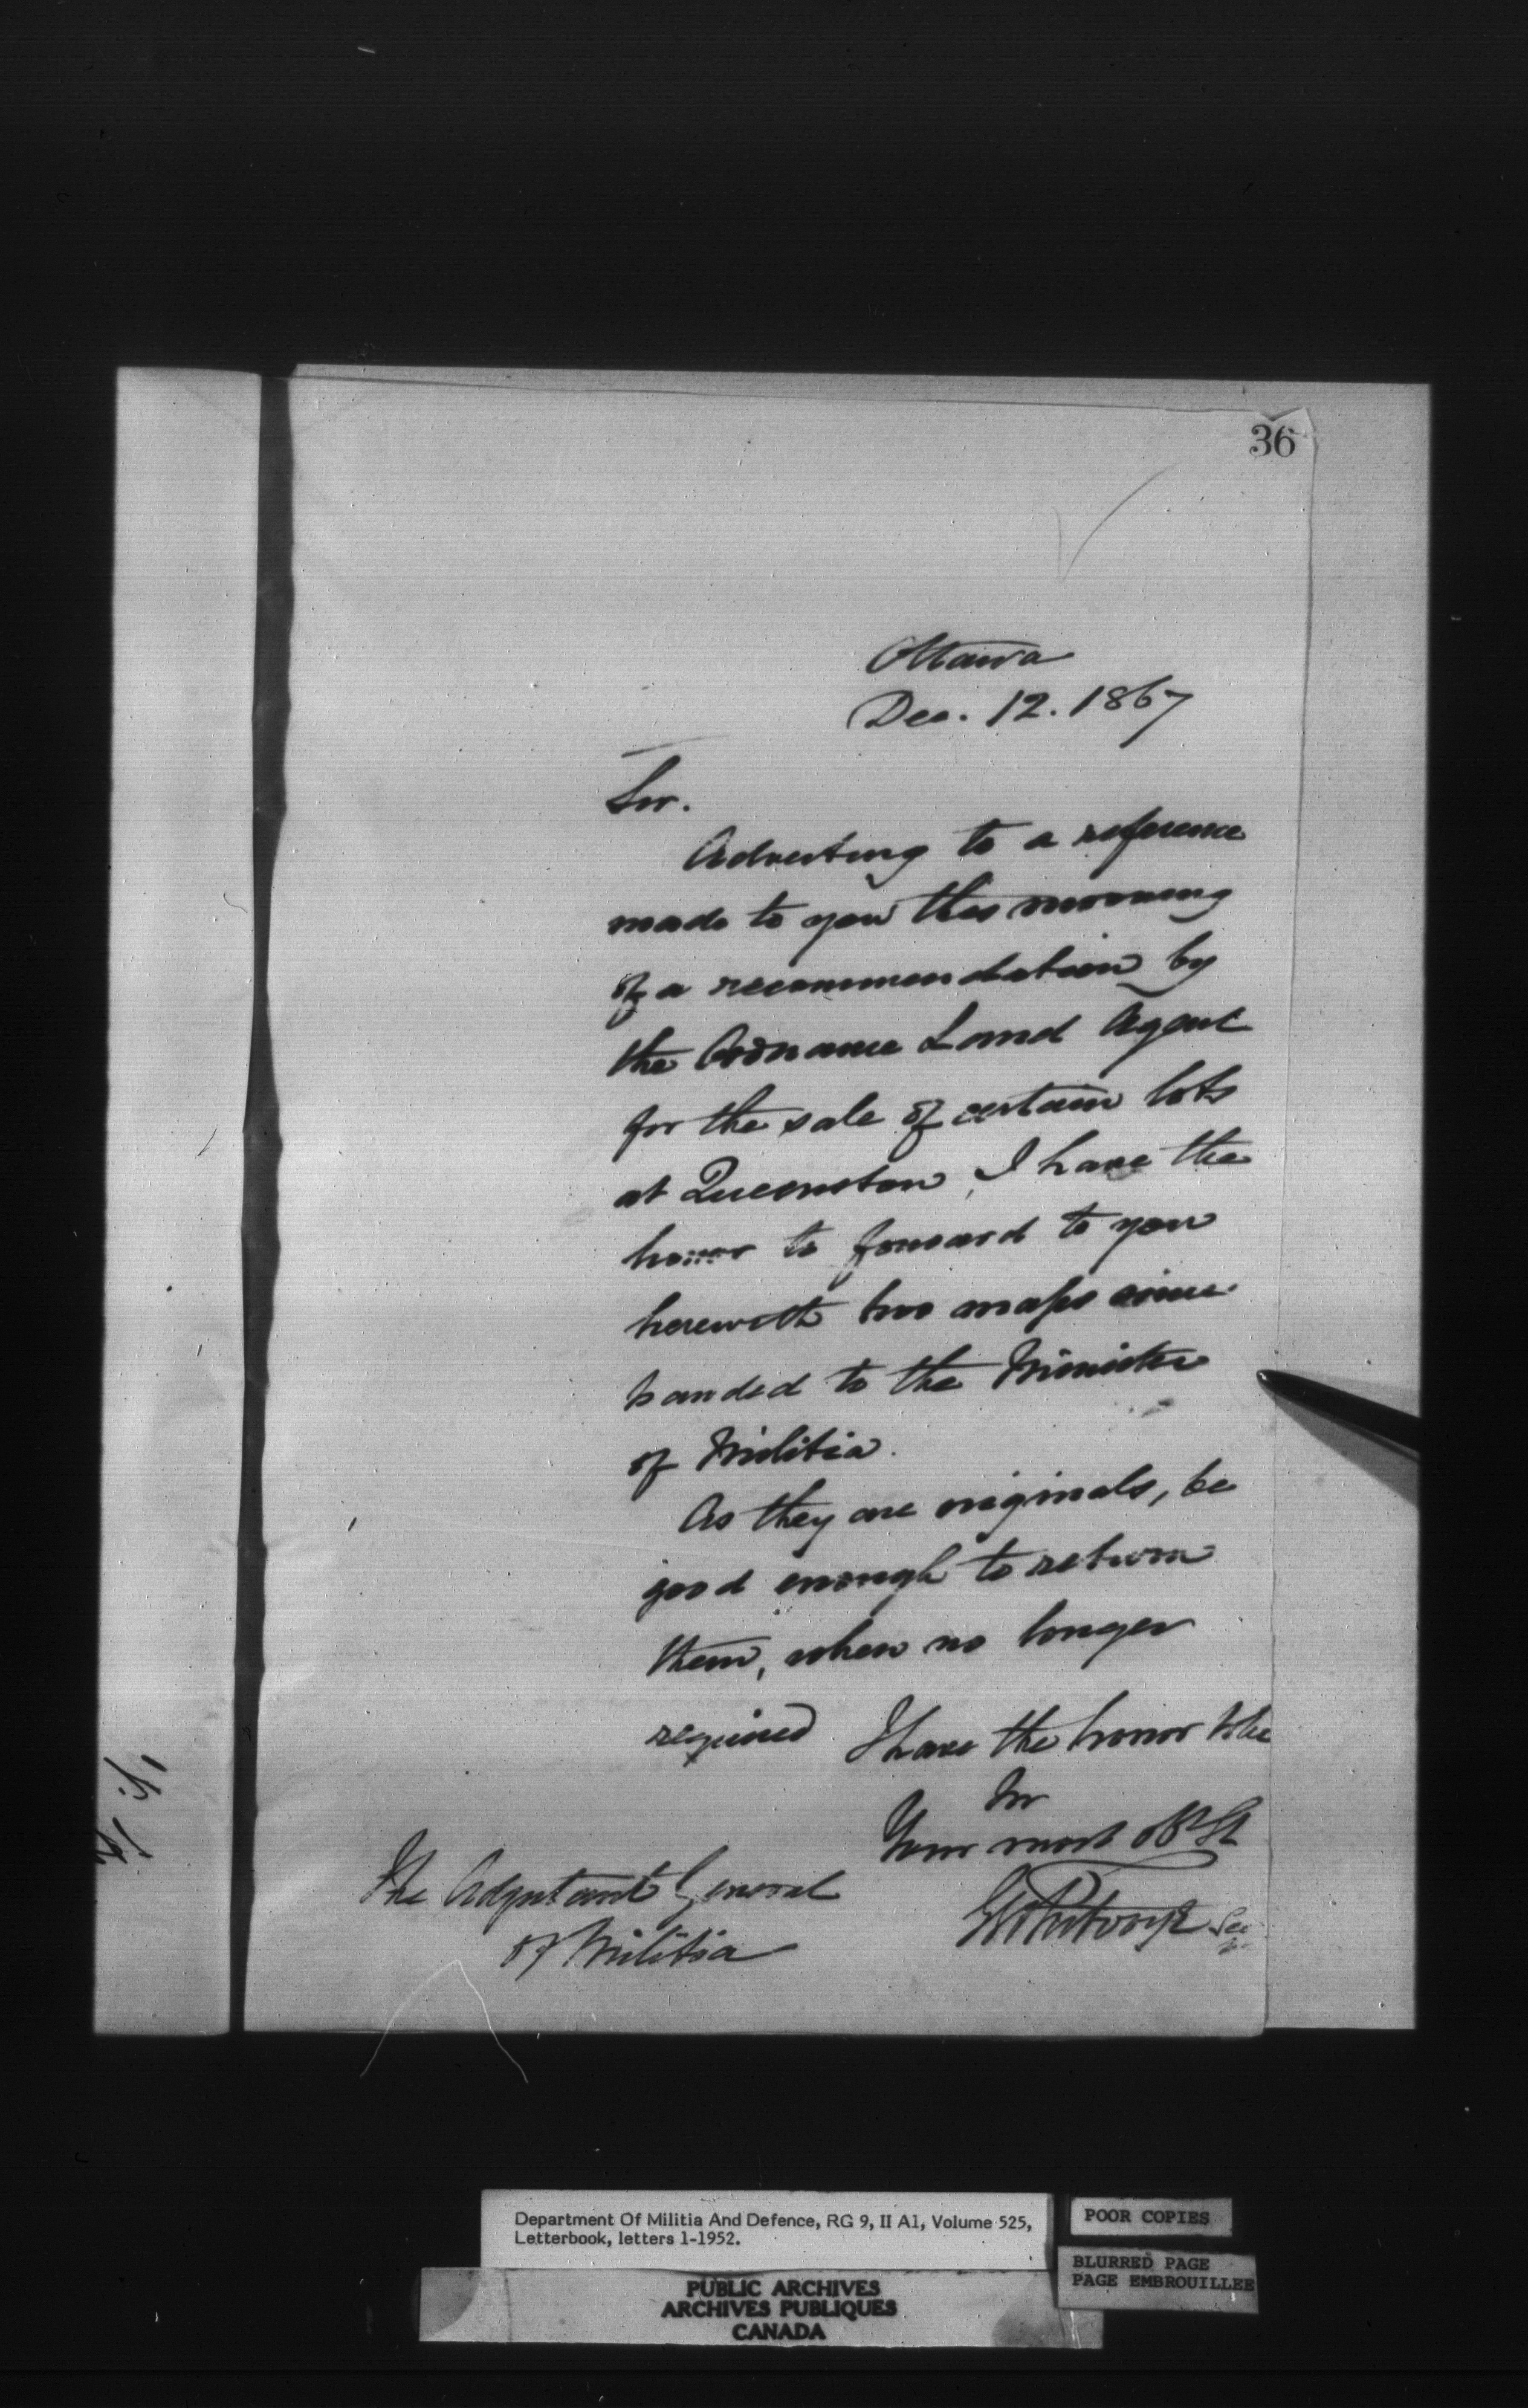 36
Ottawa
Dec. 12. 1867
Sir.
Adverting to a reference
made to you this morning
of a recommendation by
the Ordnance Land Agent
for the sale of certain lots
at Queenston, I have the
honor to forward to you
herewith two maps since
handed to the Minister
of Militia.
As they are originals, be
good enough to return
them, when no longer
required
I have the honor to be
Sir
Your most obt St
The Adjutant General
of Militia
Department Of Militia And Defence, RG 9, II A1, Volume 525,
Letterbook, letters 1-1952.
POOR COPIES
BLURRED PAGE
PAGE EMBROUILLEE
PUBLIC ARCHIVES
ARCHIVES PUBLIQUES
CANADA